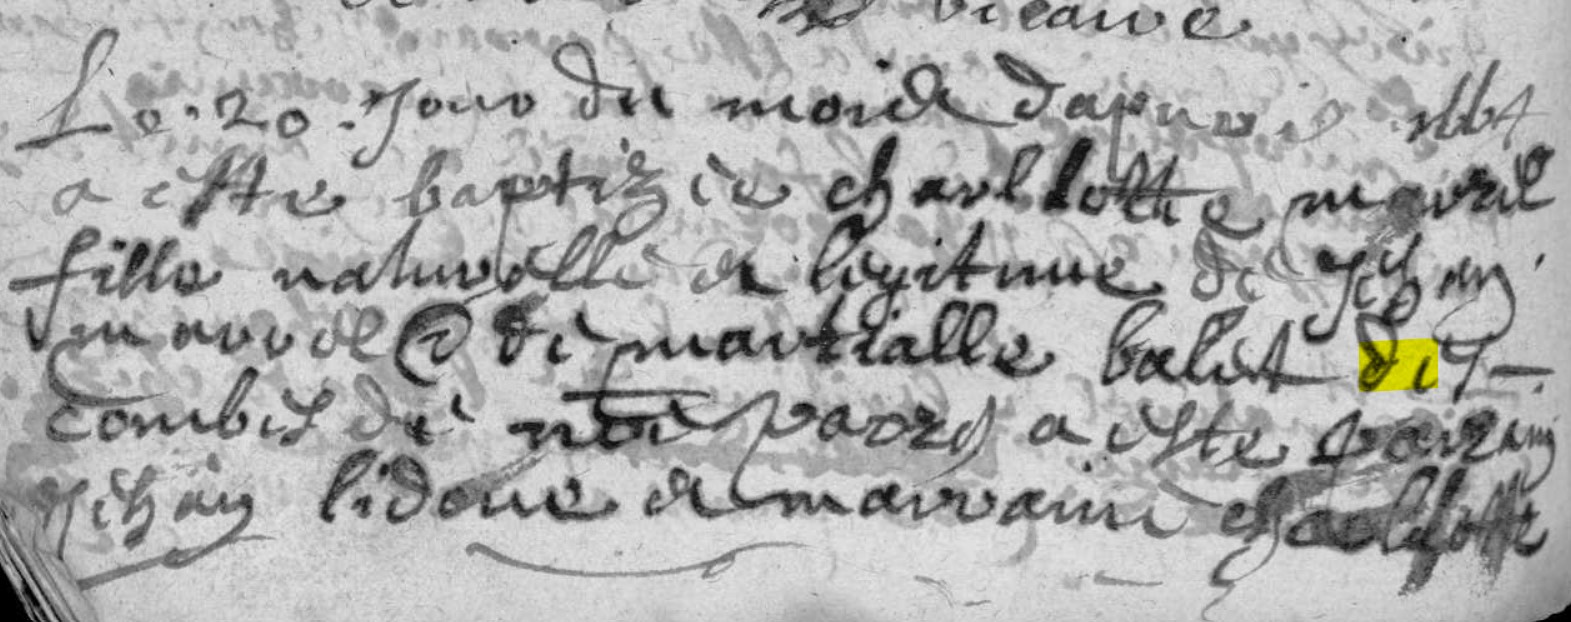 vicaire
Le 20 Jour du mois dapvril 1661
a este baptizée charllotte mavril
fille naturelle et legitime de Jehan
et de martialle balet de
combes de nre parrs a este parrain
Jehan lidoue et marraine charllotte